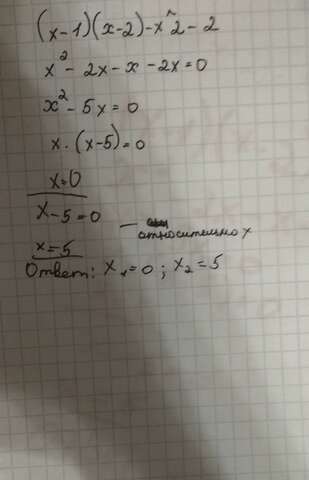 (x-1)(x-2)-x^2-2
x² - 2x - x - 2x = 0
x² - 5x = 0
x · (x-5) = 0
x=0
x-5=0
— относительно x
x=5
Ответ: x₁=0 ; x₂=5